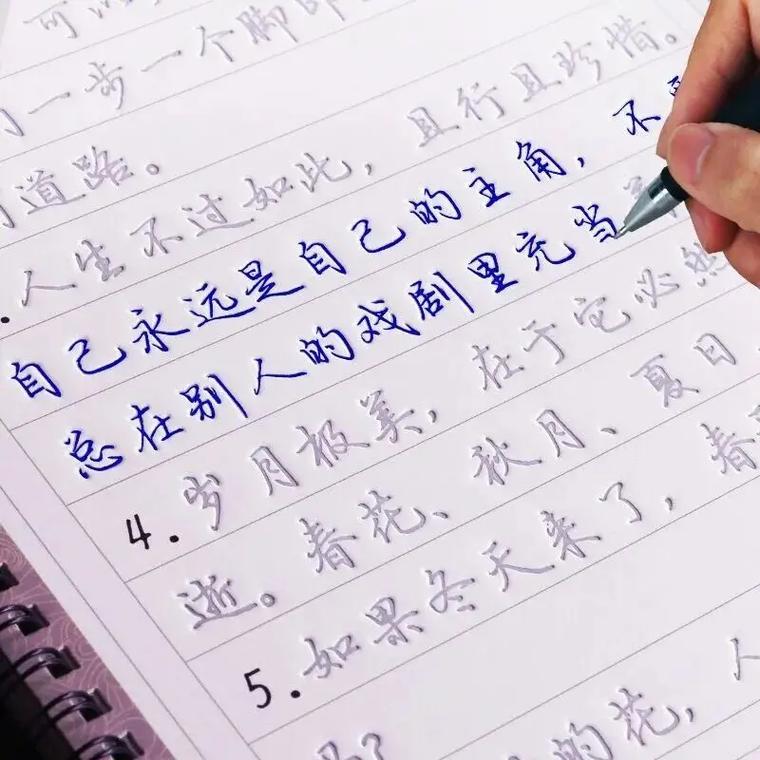 一步一个脚印
道路。
.人生不过如此，且行且珍惜。
自己永远是自己的主角，不
总在别人的戏剧里充当
4.岁月极美，在于它必然
逝。春花、秋月、夏日、
5.如果冬天来了，春
的花，人